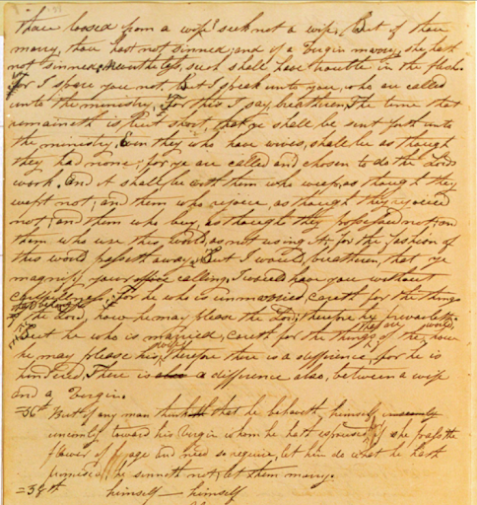 thou loosed from a wife? seek not a wife. But if thou
marry, thou hast not sinned; and if a virgin marry, she hath
not sinned. Nevertheless, such shall have trouble in the flesh.
For I spare you not. But I speak unto you, who are called
unto the ministry, For this I say, breathren, The time that
remaineth is but short, that ye shall be sent forth unto
the ministry, Even they who have wives, shall be as though
they had none; for ye are called and chosen to do the Lords
work. And it shall be with them who weep, as though they
wept not; and them who rejoice, as though they rejoiced
not; and them who buy, as though they possessed not; and
them who use this world, as not using it; for the fashion of
this world passeth away. But I would, breathren, that ye
magnify your calling. I would have you without
carefulness. For he who is unmarried, careth for the things
the Lord, how he may please the Lord; therefore he prevaileth.
But he who is married, careth for the things of the world, how
he may please his; therefore there is a difference, for he is
hindered. There is a difference also, between a wife
and a virgin.
=36th But if any man think that he behaveth himself
uncomly toward his virgin whom he hath espoused, if she pass the
flower of age and need so require, let him do what he hath
promised; he sinneth not; let them marry.
=38th himself — himself